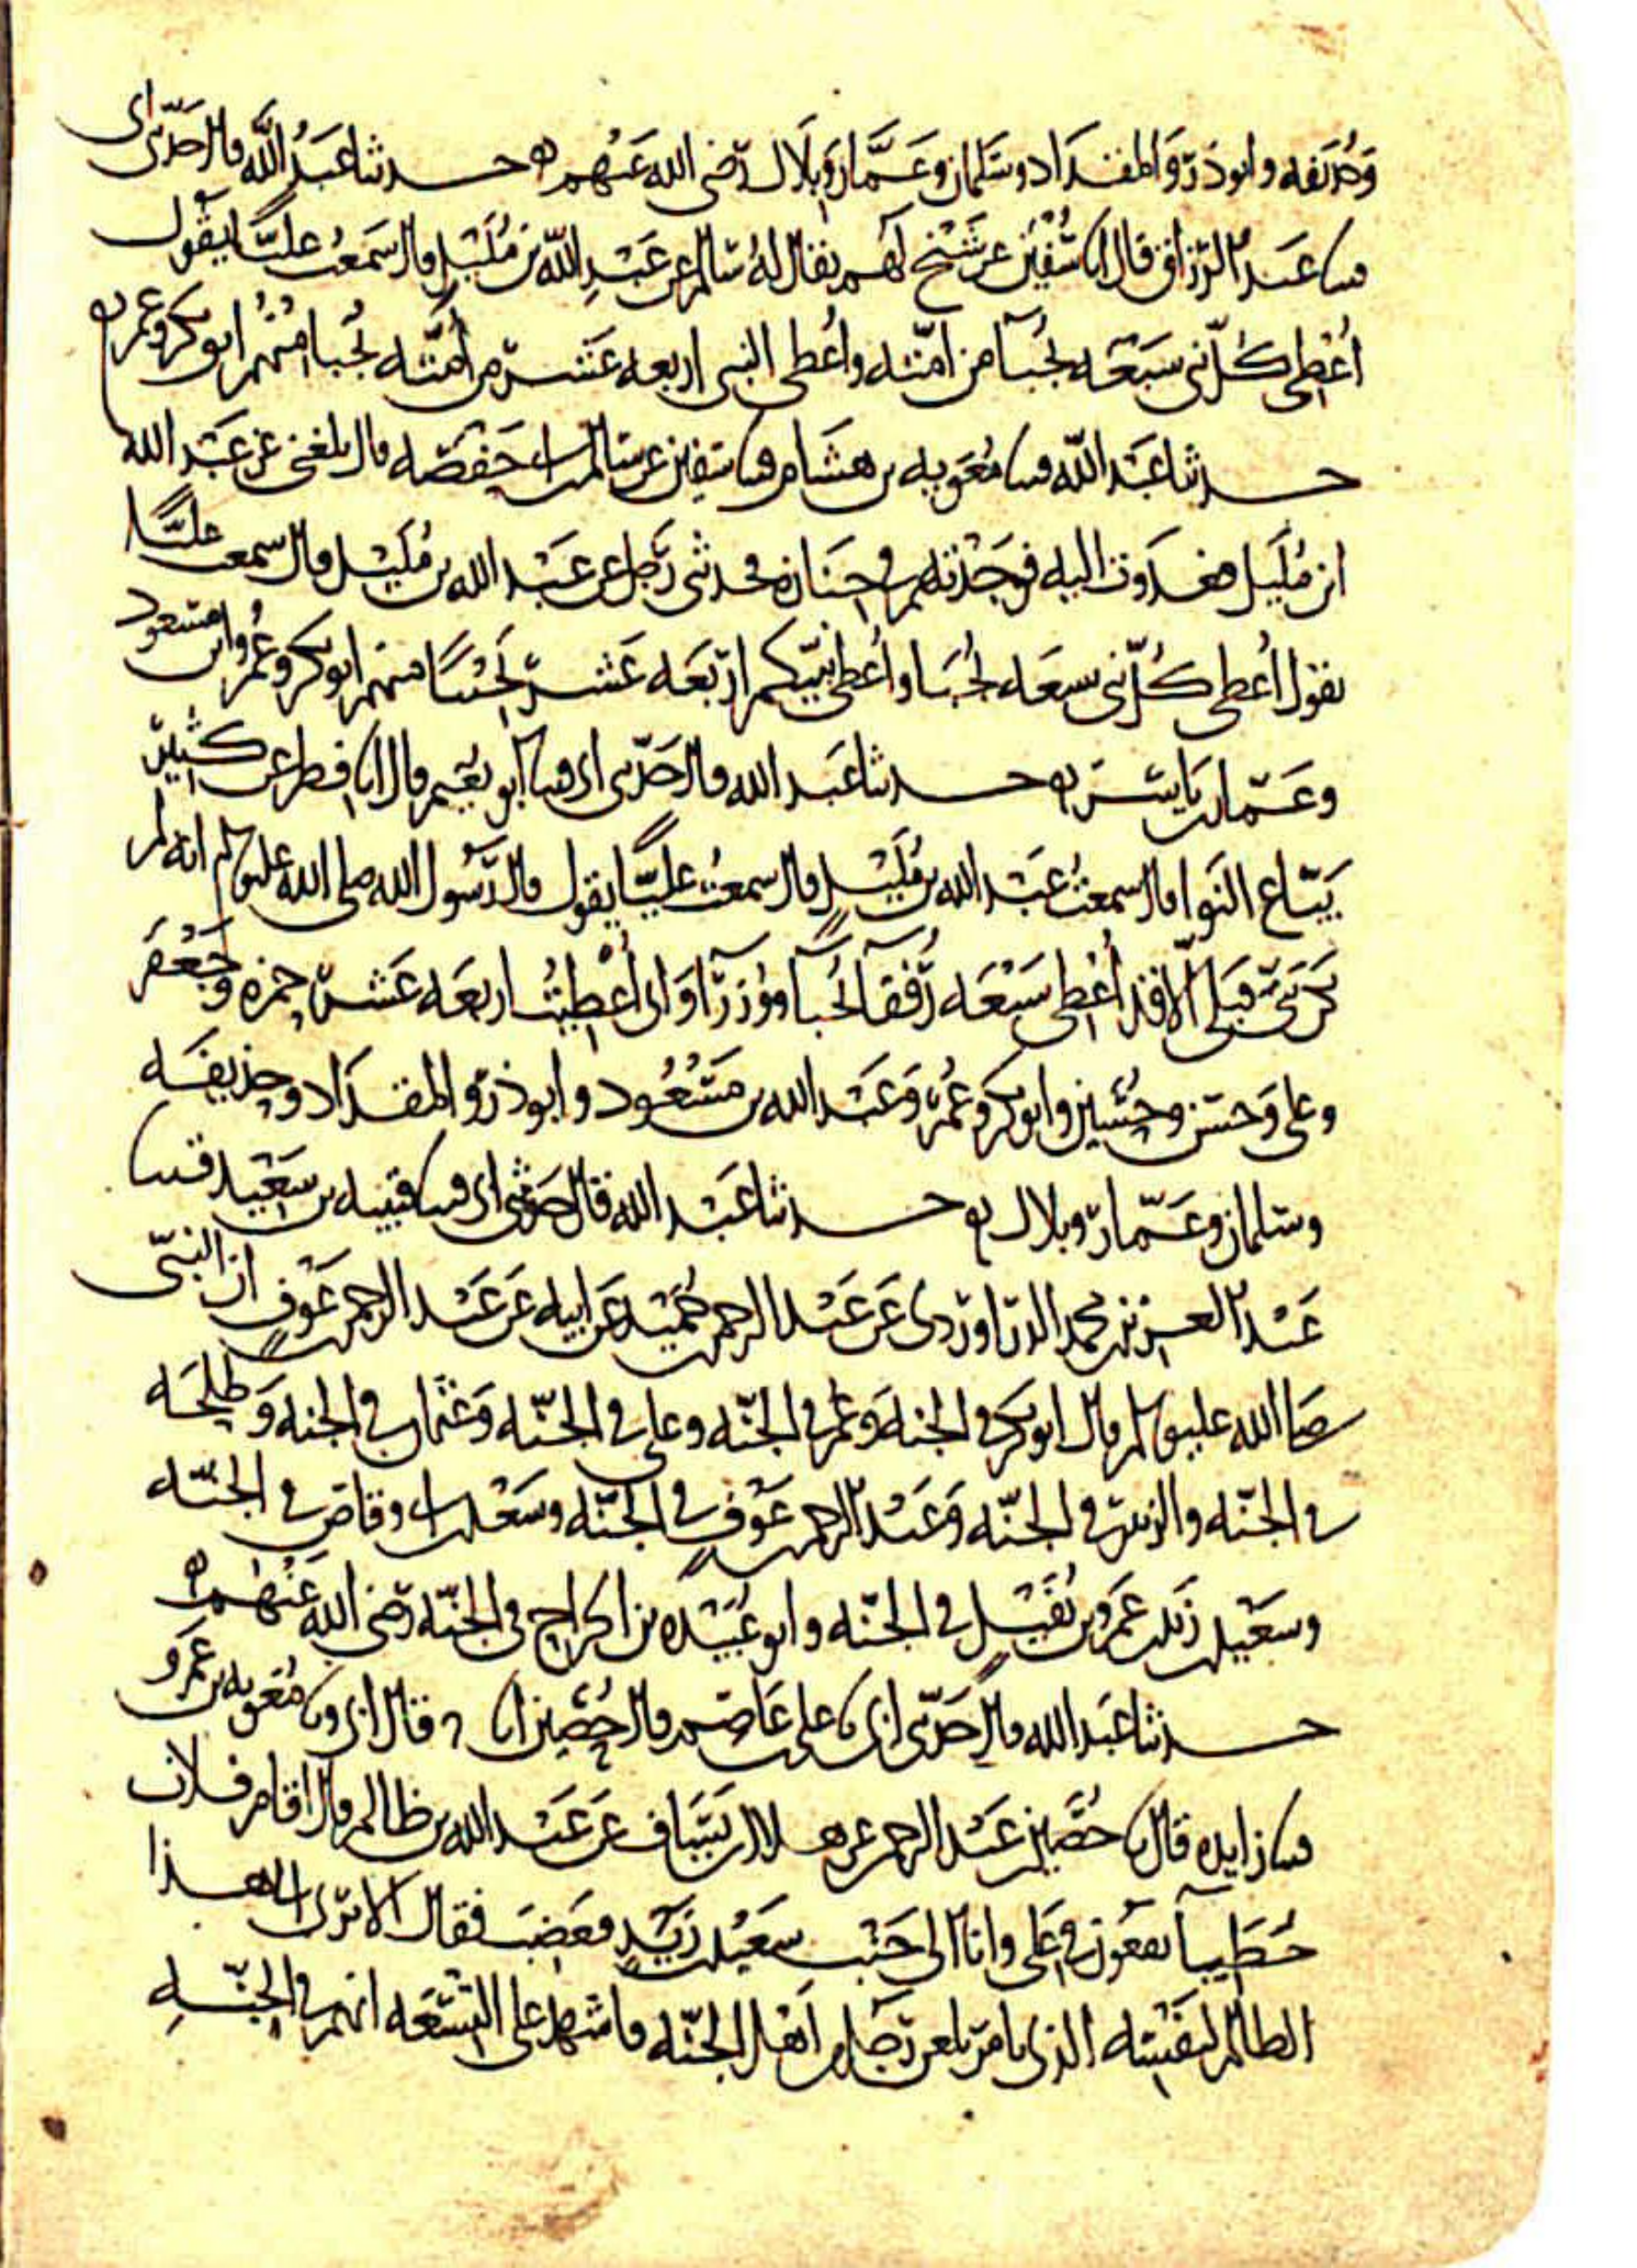 وحذيفه وابو ذر والمقداد وسلمان وعمار وبلال رضى الله عنهم ه حدثنا عبد الله قال حدثنى ابى
قثنا عبد الرزاق قال انا سفين عن شيخ لهم يقال له سالم عن عبد الله بن مليل قال سمعت عليا يقول
اعطى كل نبى سبعه نجبا من امته واعطى النبى اربعه عشر من امته نجبا منهم ابو بكر وعمر ه
حدثنا عبد الله قثنا معويه بن هشام قثنا سفين عن سالم بن ابى حفصه قال بلغنى عن عبد الله
ابن مليل فغدوت اليه فوجدتهم فى جنازه فحدثنى رجل عن عبد الله بن مليل قال سمعت عليا
يقول اعطى كل نبى سبعه نجبا واعطى نبيكم اربعه عشر نجيبا منهم ابو بكر وعمر وابن مسعود
وعمار بن ياسر ه حدثنا عبد الله قال حدثنى ابى قثنا ابو نعيم قال انا فطر عن كثير
بياع النوا قال سمعت عبد الله بن مليل قال سمعت عليا يقول قال رسول الله صلى الله عليه وسلم انه لم
يكن نبى قبلى الا قد اعطى سبعه رفقا نجبا وزرا وانى اعطيت اربعه عشر حمزه وجعفر
وعلى وحسن وحسين وابو بكر وعمر وعبد الله بن مسعود وابو ذر والمقداد وحذيفه
وسلمان وعمار وبلال ه حدثنا عبد الله قال حدثنى ابى قثنا قتيبه بن سعيد قثنا
عبد العزيز بن محمد الدراوردى عن عبد الرحمن بن حميد عن ابيه عن عبد الرحمن بن عوف ان النبى
صلى الله عليه وسلم قال ابو بكر فى الجنه وعمر فى الجنه وعلى فى الجنه وعثمان فى الجنه وطلحه
فى الجنه والزبير فى الجنه وعبد الرحمن بن عوف فى الجنه وسعد بن ابى وقاص فى الجنه
وسعيد بن زيد بن عمرو بن نفيل فى الجنه وابو عبيده بن الجراح فى الجنه رضى الله عنهم ه
حدثنا عبد الله قال حدثنى ابى نا على بن عاصم قال حصين انا ح قال ابى ونا معويه بن عمرو
قثنا زايده قال نا حصين بن عبد الرحمن عن هلال بن يساف عن عبد الله بن ظالم قال اقام فلان
خطيبا يقعون فى على وانا الى جنب سعيد بن زيد فغضب فقال الا ترى الى هذا
الظالم لنفسه الذى يامر بلعن رجل من اهل الجنه فاشهد على التسعه انهم فى الجنه